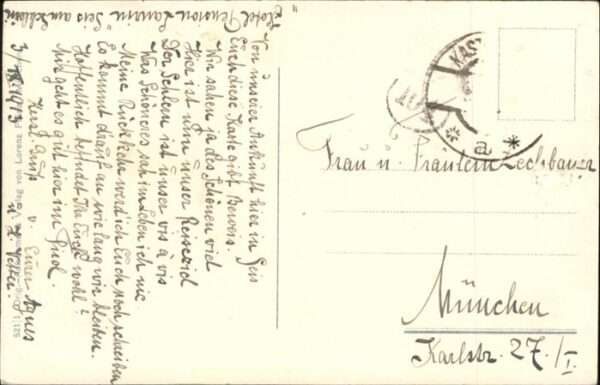 Hotel Pension Laurin Seis am Schlern
Von unserer Ankunft hier in Seis
Euch diese Karte gibt Beweis.
Wir sahen ja des Schönen viel
Hier ist nun unser Reiseziel
Der Schlern ist unser vis à vis
Was Schöneres sah im Leben ich nie
Meine Rückkehr werd ich Euch noch schreiben
Es kommt drauf an wie lang wir bleiben.
Hoffentlich befindet Ihr Euch wohl?
Mir geht es gut hier im Tirol.
Herzl. Gruß v. Eurer Agnes
u. L. Vetter.
3/ 1913
Verlag von Lorenz
KAS
a
Frau u. Fräulein Zechbauer
München
Karlstr. 27./I.